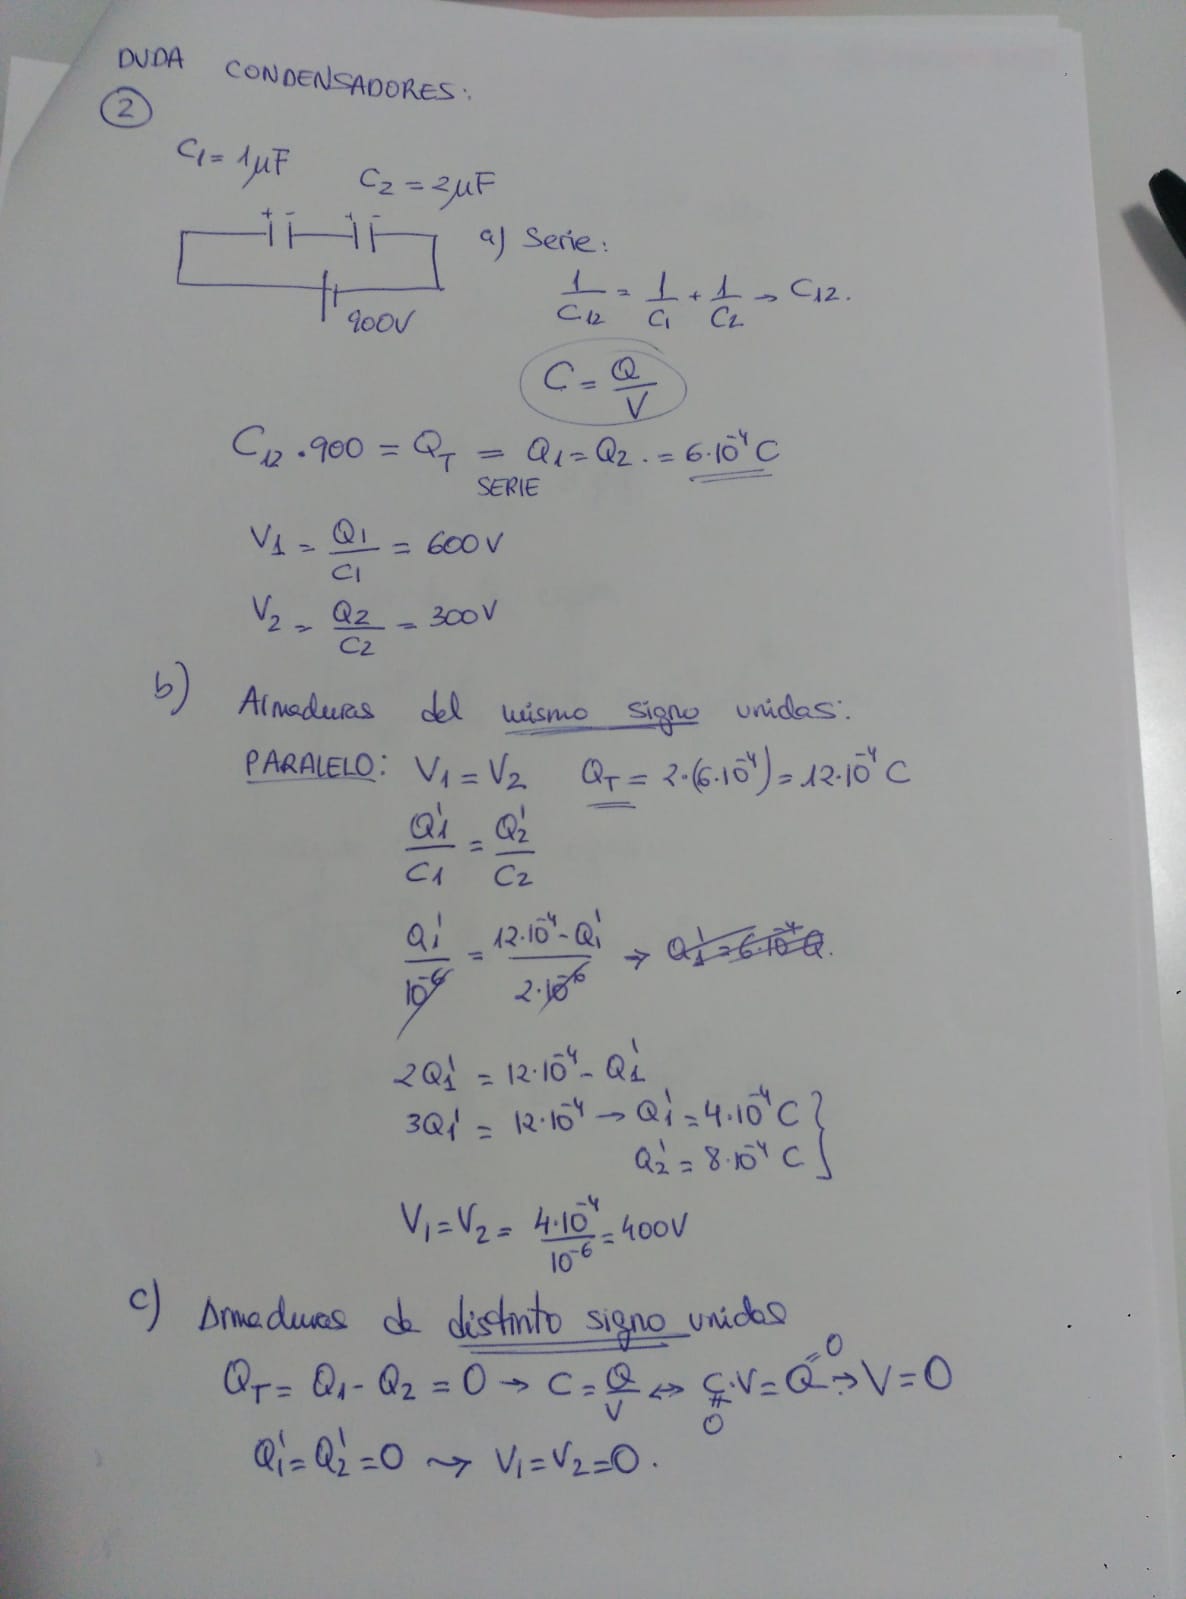 DUDA CONDENSADORES:
2
C1 = 1μF
C2 = 2μF
+ - + -
900V
a) Serie:
1/C12 = 1/C1 + 1/C2 → C12.
C = Q/V
C12 · 900 = QT = Q1 = Q2 . = 6·10^-4 C
SERIE
V1 = Q1/C1 = 600V
V2 = Q2/C2 = 300V
b) Armaduras del mismo signo unidas:
PARALELO: V1 = V2 QT = 2·(6·10^-4) = 12·10^-4 C
Q1'/C1 = Q2'/C2
Q1'/10^-6 = (12·10^-4 - Q1')/(2·10^-6) → Q1' = 6·10^-4
2Q1' = 12·10^-4 - Q1'
3Q1' = 12·10^-4 → Q1' = 4·10^-4 C
Q2' = 8·10^-4 C
V1 = V2 = 4·10^-4/10^-6 = 400V
c) Armaduras de distinto signo unidas
QT = Q1 - Q2 = 0 → C = Q/V ↔ C·V = Q =0 → V = 0
≠ 0
Q1' = Q2' = 0 → V1 = V2 = 0.